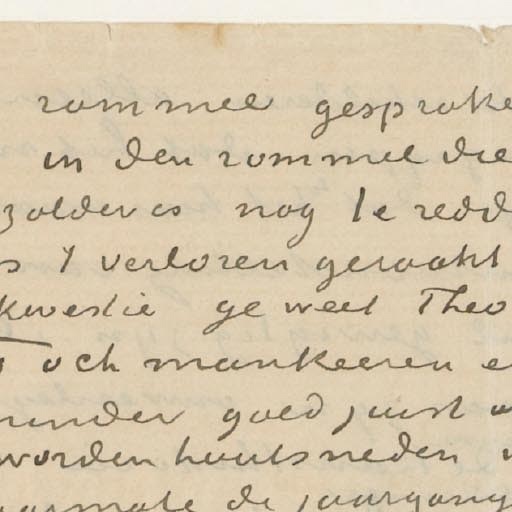 rommel gesproke
in den rommel die
zolder is nog te redd
is 't verloren geraakt
kwestie geweest Theo
toch mankeeren e
minder goed juist
worden houtsneden
naarmate de jaargang